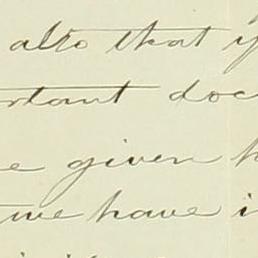 also that y
rtant doc
e given h
t we have i